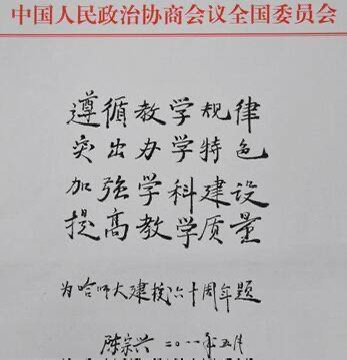 中国人民政治协商会议全国委员会
遵循教学规律
突出办学特色
加强学科建设
提高教学质量
为哈师大建校六十周年题
陈宗兴 二〇一一年五月